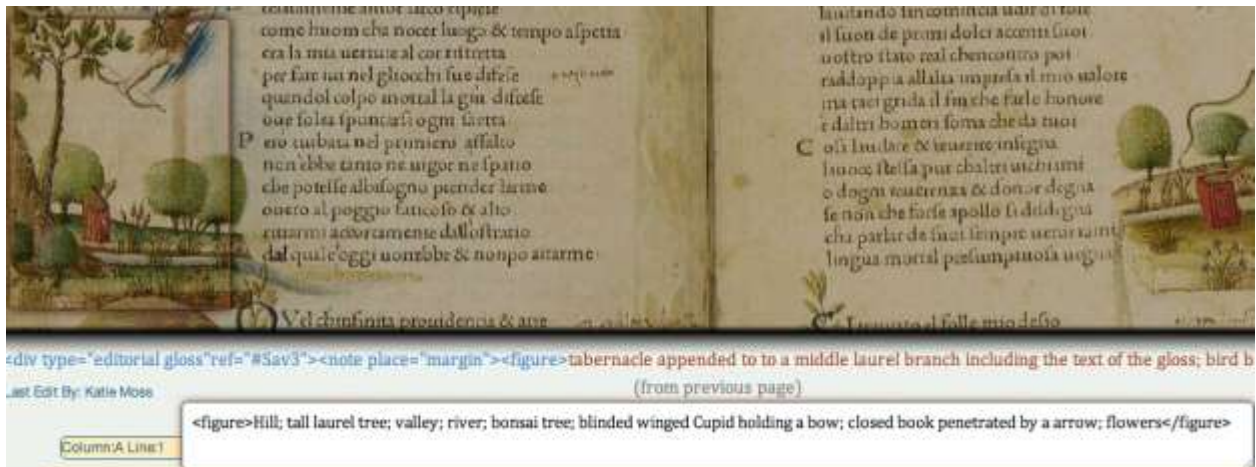 come huom cha nocer luogo & tempo aspetta
era la mia uertute al cor ristretta
per far iui nel gliocchi sue difese
quandol colpo mortal la giu discese
oue solea spuntarsi ogni saetta
P ero turbata nel primiero assalto
non ebbe tanto ne uigor ne spatio
che potesse albisogno prender larme
ouero al poggio faticoso & alto
ritrarmi accortamente dallo stratio
dal quale oggi uorrebbe & non po aitarme
Q Vel chinfinita prouidentia & arte
laudando sincomincia udir di fore
il suon de primi dolci accenti suoi
uostro stato real chencontro poi
raddoppia allalta impresa il mio ualore
ma taci grida il fin che farle honore
e daltri homeri soma che da tuoi
C osi laudare & reuerire insegna
la uoce stessa pur chaltri uichiami
o dogni reuerenza & donor degna
se non che forse apollo si disdegna
cha parlar de suoi sempre uerdi rami
lingua mortal presumptuosa uegna
S I trauiato el folle mio desio
<div type="editorial gloss"ref="#Sav3"><note place="margin"><figure>tabernacle appended to to a middle laurel branch including the text of the gloss; bird b
Last Edit By: Katie Moss
(from previous page)
<figure>Hill; tall laurel tree; valley; river; bonsai tree; blinded winged Cupid holding a bow; closed book penetrated by a arrow; flowers</figure>
Column:A Line:1